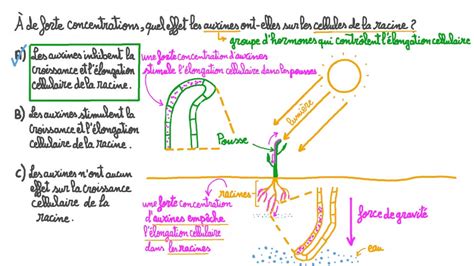 À de fortes concentrations, quel effet les auxines ont-elles sur les cellules de la racine ?
groupe d'hormones qui contrôlent l'élongation cellulaire
A) Les auxines inhibent la
croissance et l'élongation
cellulaire de la racine.
une forte concentration d'auxines
stimule l'élongation cellulaire dans les pousses
B) Les auxines stimulent la
croissance et l'élongation
cellulaire de la racine.
lumière
Pousse
C) Les auxines n'ont aucun
effet sur la croissance
cellulaire de la
racine.
racines
une forte concentration
d'auxines empêche
l'élongation cellulaire
dans les racines
force de gravité
eau